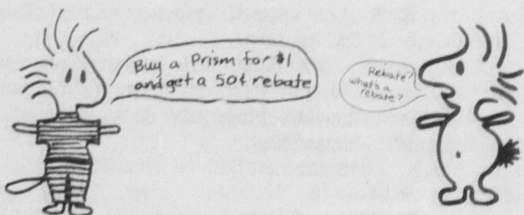 Buy a Prism for $1
and get a 50¢ rebate
Rebate?
what's a
rebate?